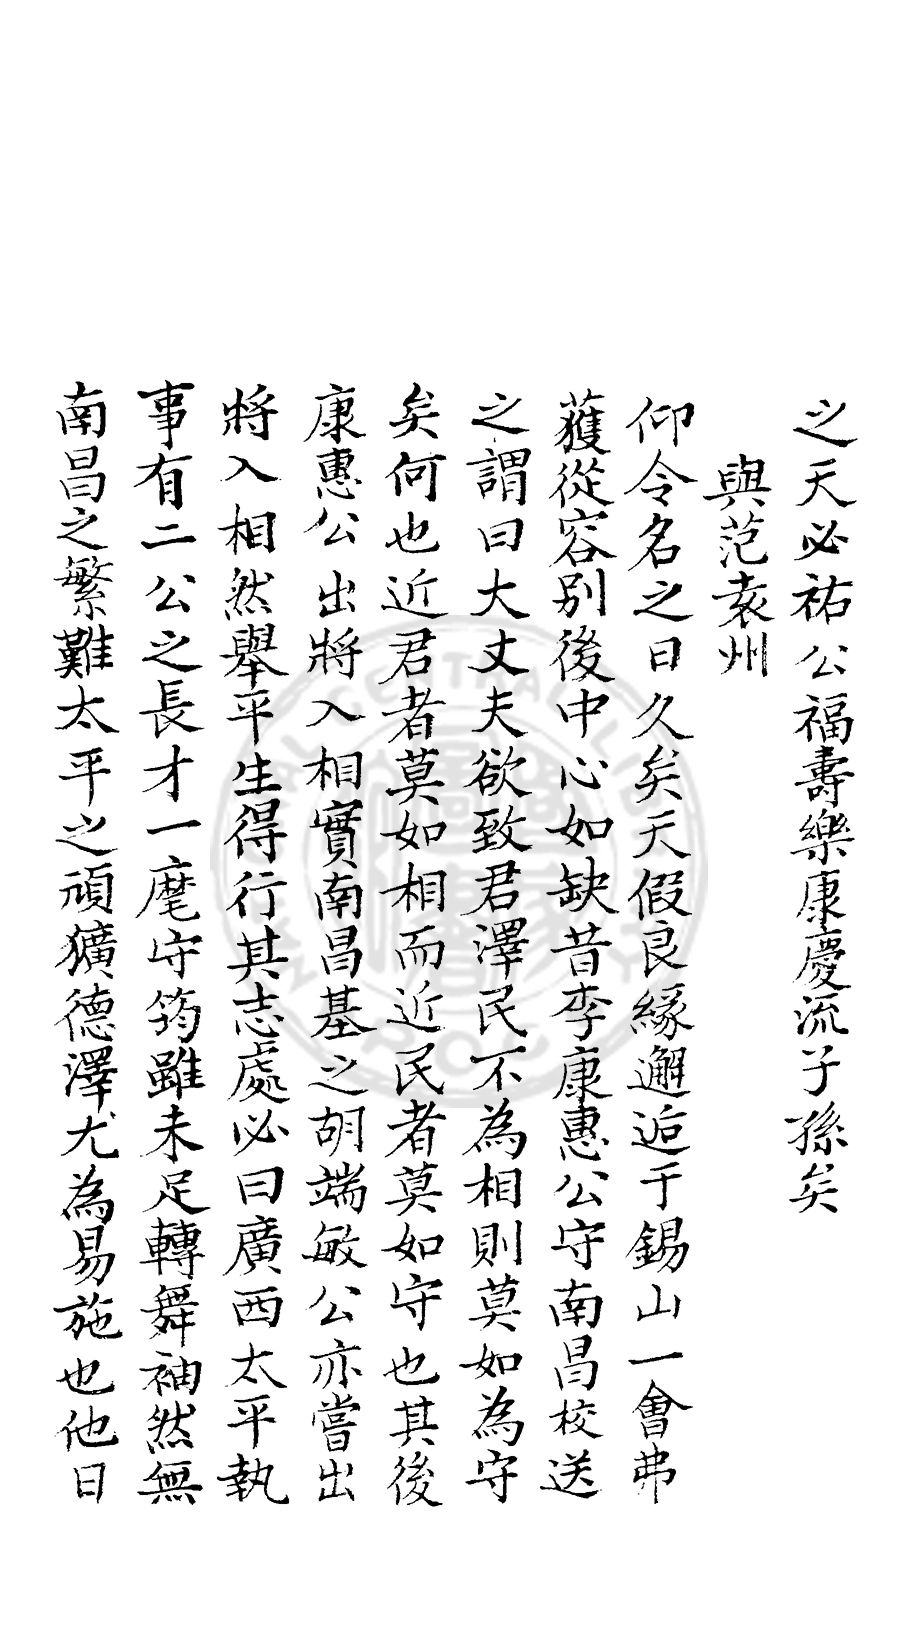 之天必祐公福壽樂康慶流子孫矣
與范袁州
仰令名之日久矣天假良緣邂逅于錫山一會弗
獲從容別後中心如缺昔李康惠公守南昌校送
之謂曰大丈夫欲致君澤民不為相則莫如為守
矣何也近君者莫如相而近民者莫如守也其後
康惠公出將入相實南昌基之胡端敏公亦嘗出
將入相然舉平生得行其志處必曰廣西太平執
事有二公之長才一麾守筠雖未足轉舞袖然無
南昌之繁難太平之頑獷德澤尤為易施也他日